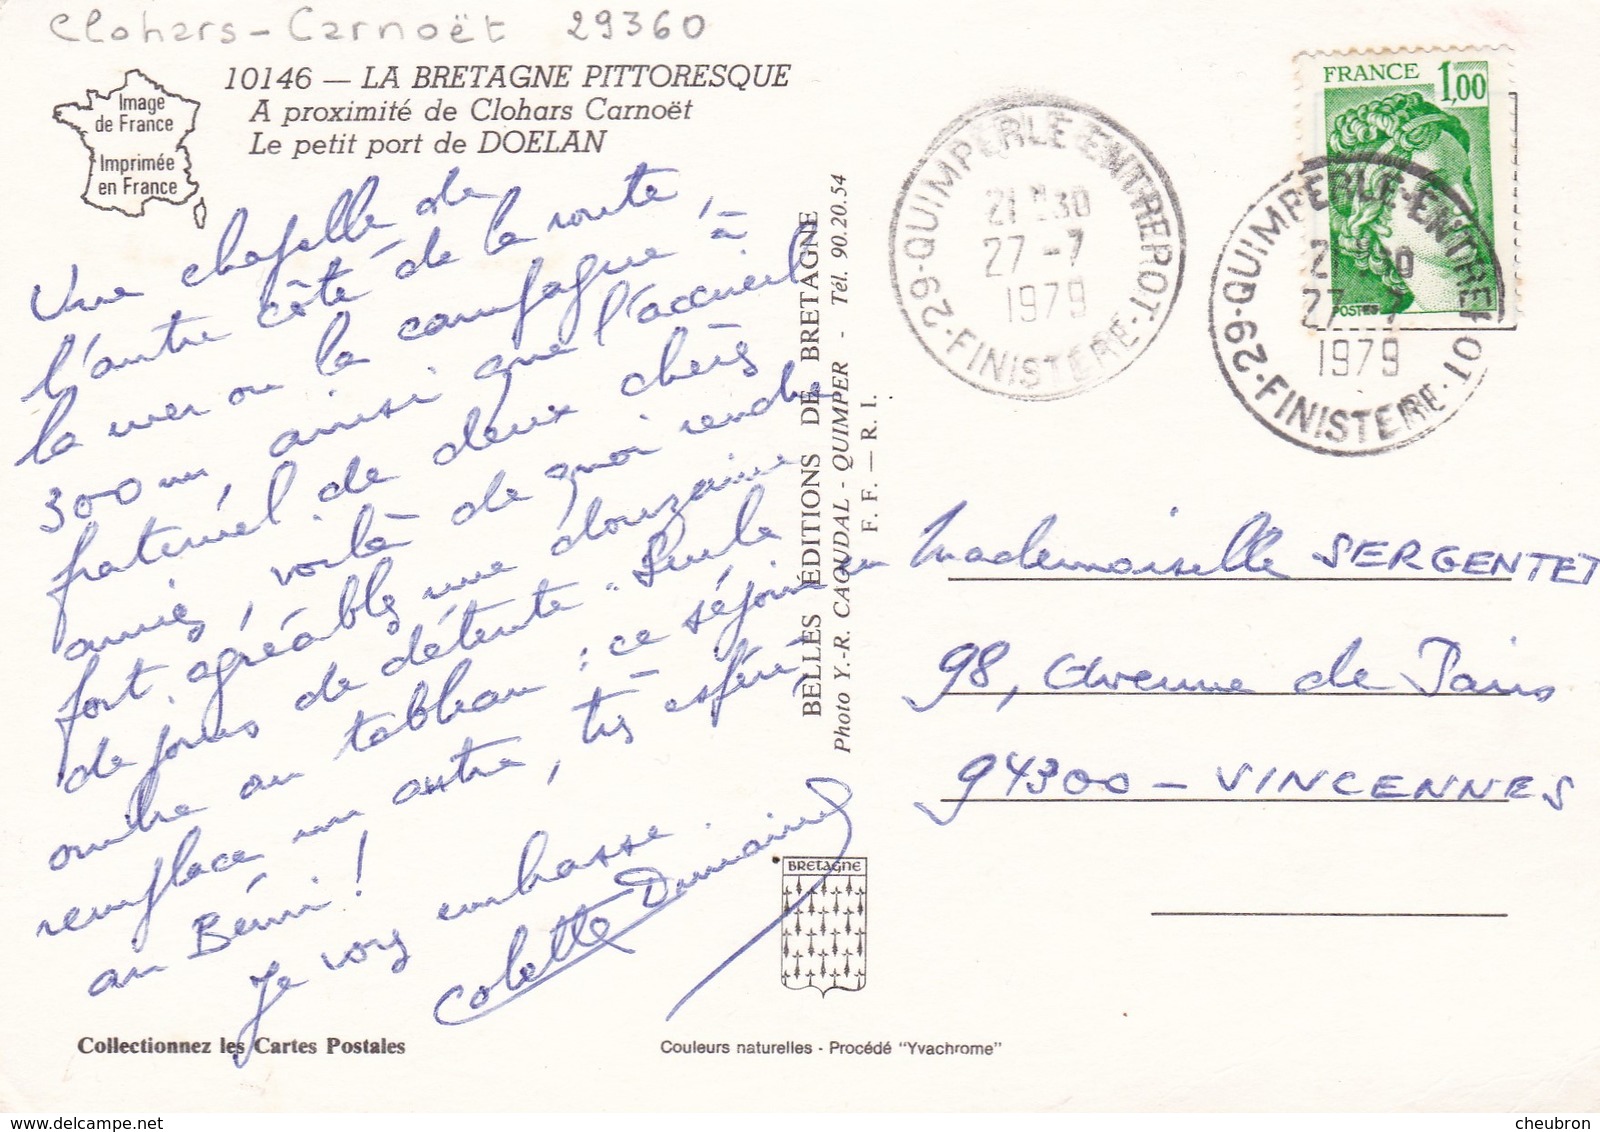 Clohars-Carnoët 29360
10146 — LA BRETAGNE PITTORESQUE
A proximité de Clohars Carnoët
Le petit port de DOELAN
Image
de France
Imprimée
en France
Une chapelle de
l'autre côté de la route,
la mer ou la campagne à
300 m, ainsi que l'accueil
fraternel de deux chères
amies, voilà de quoi rendre
fort agréables une douzaine
de jours de détente. Seule
ombre au tableau : ce séjour en
remplace un autre, très espéré
au Bénin !
Je vous embrasse.
Colette
BELLES ÉDITIONS DE BRETAGNE
Photo Y.-R. CAOUDAL - QUIMPER - Tél. 90.20.54
F. F. — R. I.
FRANCE 1,00
POSTES
29-QUIMPERLE-ENTREPOT-FINISTERE
21 H 30
27 -7
1979
29-QUIMPERLE-ENTREPOT-FINISTERE
27 -7
1979
Mademoiselle SERGENTET
98, Avenue de Paris
94300 - VINCENNES
BRETAGNE
Collectionnez les Cartes Postales
Couleurs naturelles - Procédé "Yvachrome"
cheubron